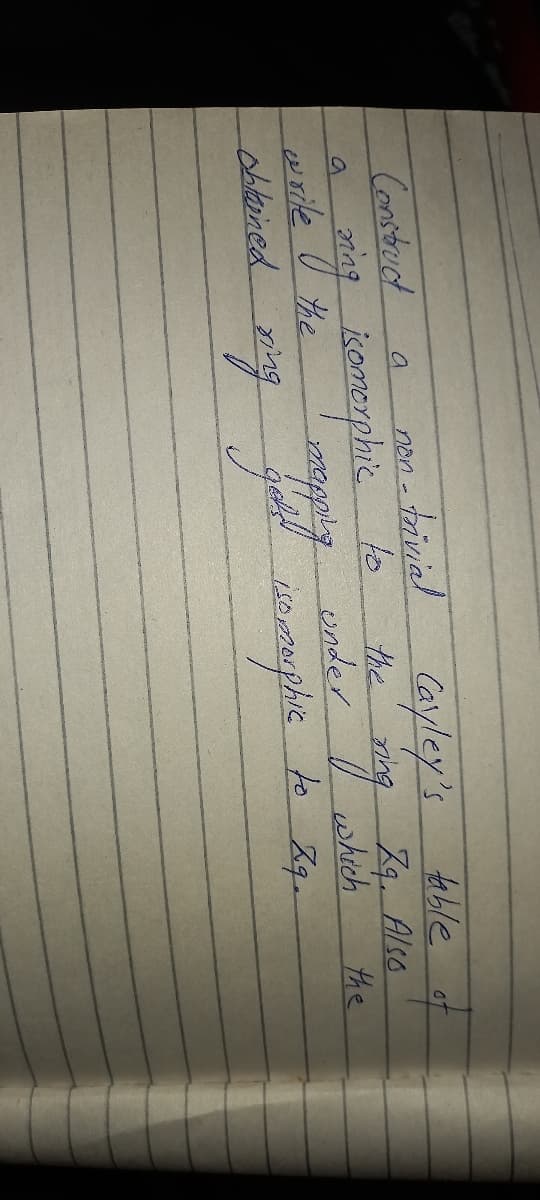 Construct a non-trivial Cayley's table of
a ring isomorphic to the ring Z9. Also
write the mapping under which the
obtained ring gets isomorphic to Z9.